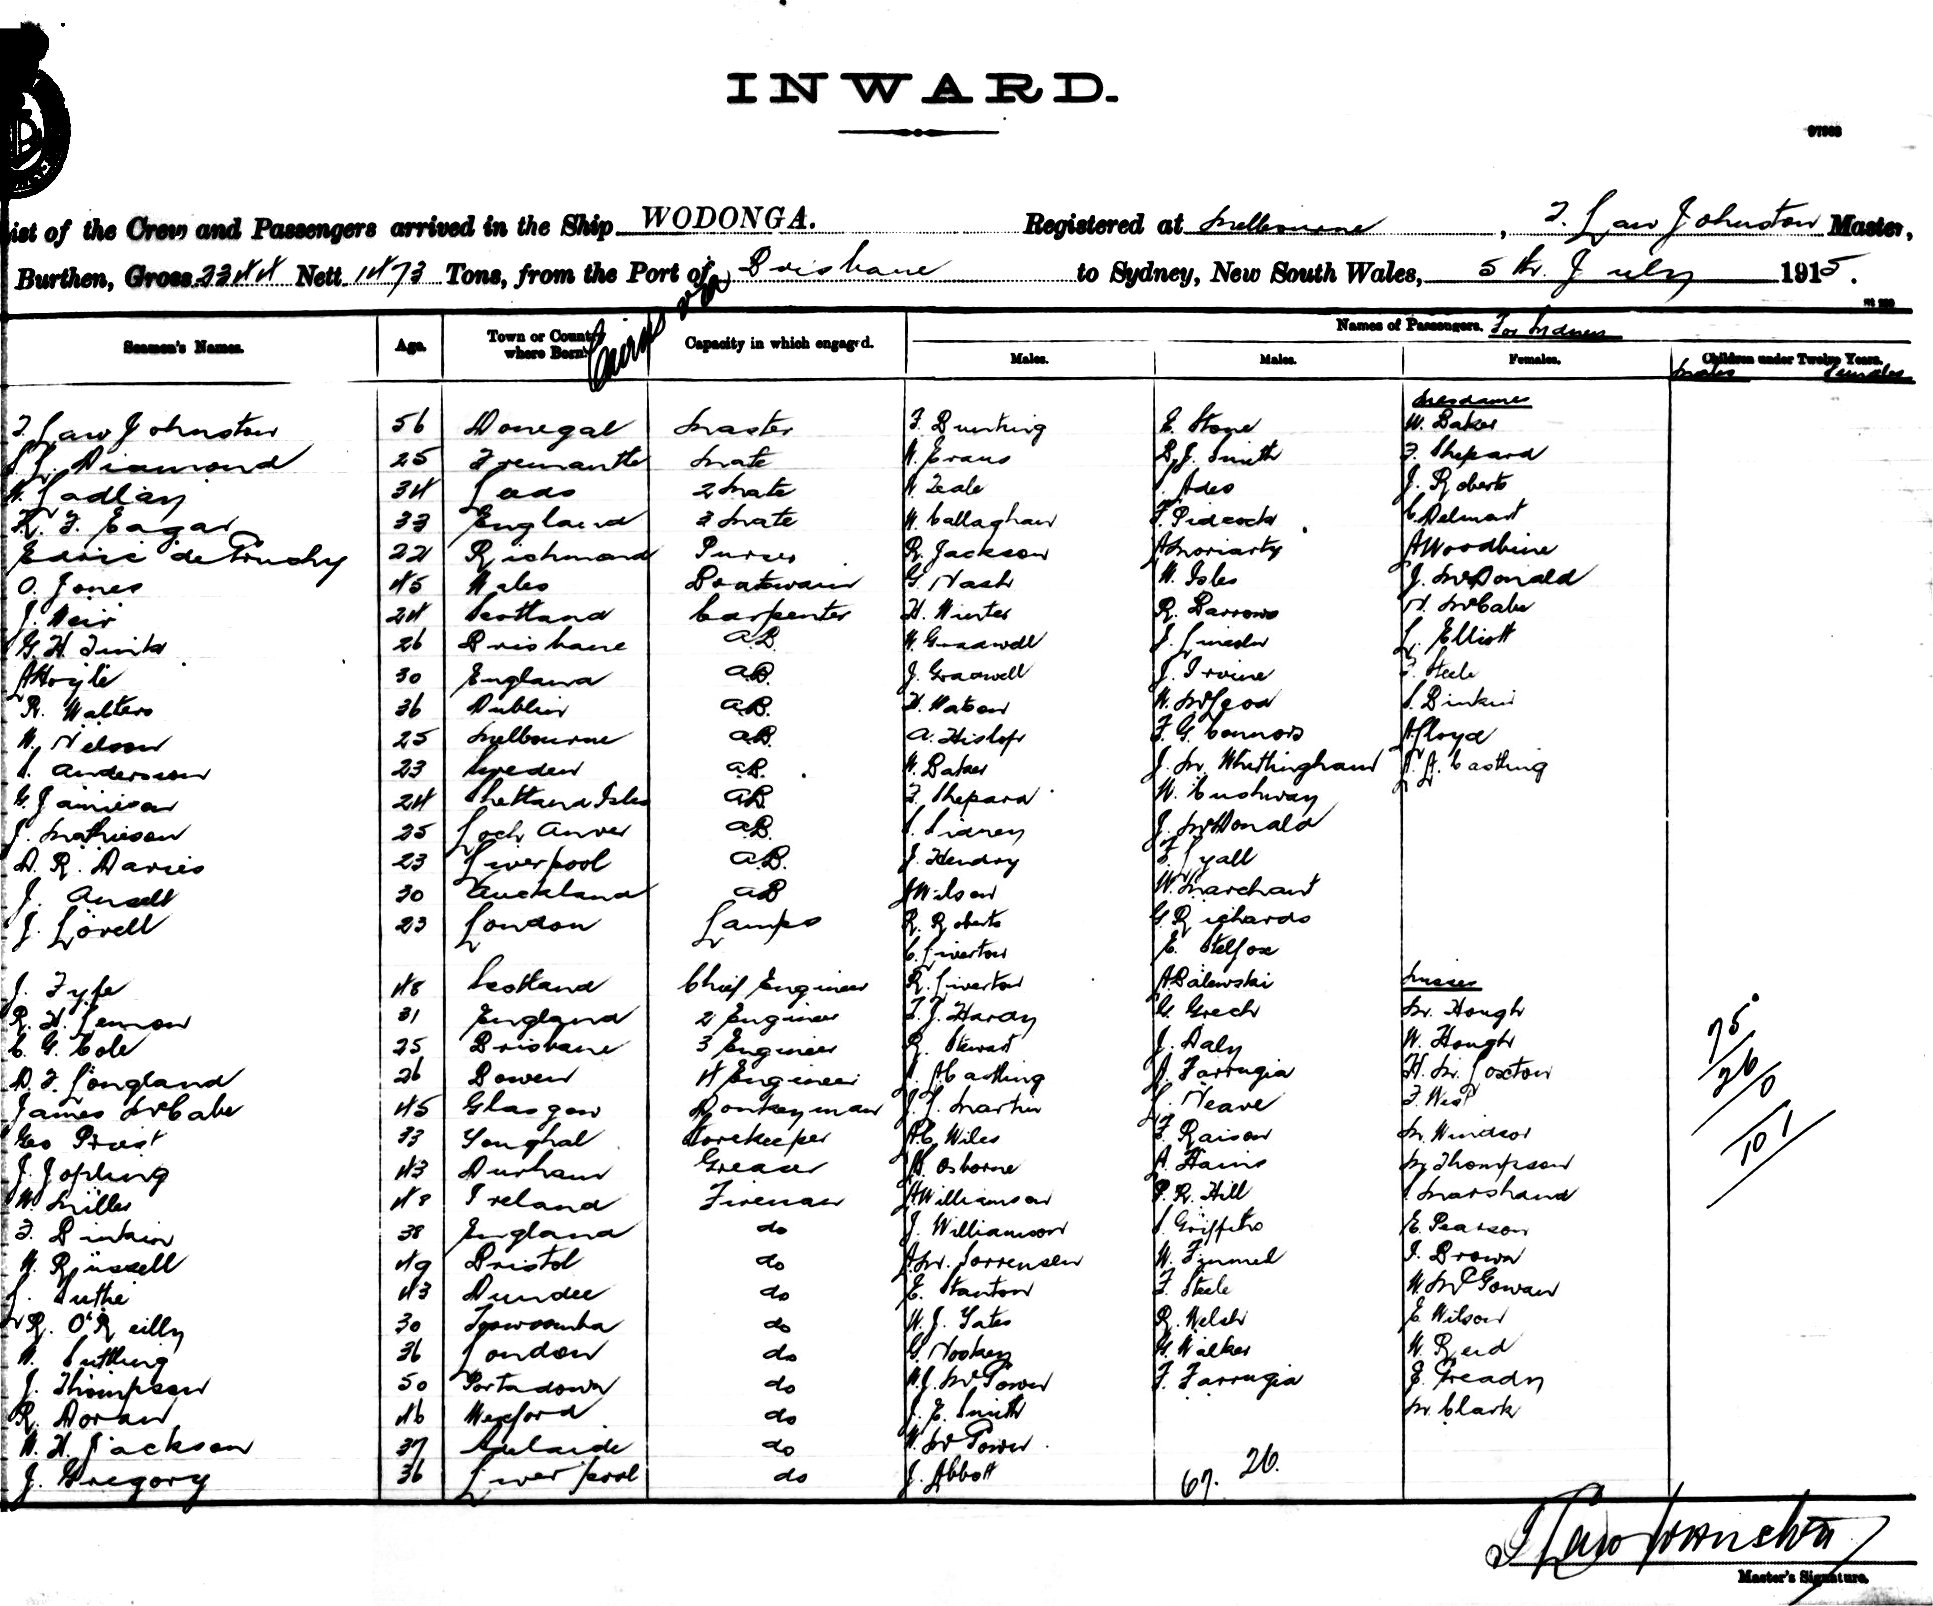 INWARD.
97003
ist of the Crew and Passengers arrived in the Ship WODONGA. Registered at Melbourne, F. Law Johnston Master,
Burthen, Gross 2344 Nett 1473 Tons, from the Port of Cairns via Brisbane to Sydney, New South Wales, 5th. July 1915.
Seamen's Names. Age. Town or Country where Born. Capacity in which engaged. Names of Passengers.
Males. Males. Females. Children under Twelve Years.
Males Females
Mesdames
F. Law Johnston 56 Donegal Master F. Bunting E. Stone W. Baker
Diamond 25 Fremantle Mate W. Evans B. J. Smith F. Shepard
W. Ladlay 34 Leeds 2 Mate W. Teale Ades J. Roberts
F. Eagar 33 England 3 Mate W. Callaghan F. Pidcock C. Delmart
22 Richmond Purser R. Jackson A Moriarty A Woodbine
O. Jones 45 Wales Boatswain G. Nash W. Isles J. McDonald
J. Weir 24 Scotland Carpenter H. Winter R. Barrows McCabe
G. H. 26 Brisbane A.B. W. J. L. Elliott
A Hoyle 30 England A.B. J. J. Irvine F. Steele
R. Walters 36 Dublin A.B. H. Watson W. McLeod S. Binkin
W. Nelson 25 Melbourne A.B. A. Hislop F. G. Connors A Lloyd
S. Anderson 23 Sweden A.B. W. Baker J. M. Whittingham A. Castling
G. Jamieson 24 Shetland Isles A.B. F. Shepard W. Cushway
J. Mathieson 25 Loch Inver A.B. S. Sidney J. McDonald
D. R. Davies 23 Liverpool A.B. J. Hendry F. Lyall
J. Ansell 30 Auckland A.B J Wilson W. Marchant
J. Lovell 23 London Lamps R. Roberts G. Richards
C. Liverton E. Stelfox
J. Fyfe 48 Scotland Chief Engineer R. Liverton A Balewski Misses
R. H. Lemon 31 England 2 Engineer J. Hardy G. Grech M. Hough
C. G. Cole 25 Brisbane 3 Engineer R. Stewart J. Daly W. Hough
D. F. Longland 26 Bowen 4 Engineer A. Castling J. Farrugia H. M. Loxton
James McCabe 45 Glasgow Donkeyman J. Martin L. Neave F. West
Geo Priest 33 Youghal Storekeeper A C. Wiles F. Raison M. Windsor
J. Jopling 43 Durham Greaser Osborne A. Hains M. Thompson
W. Miller 48 Ireland Fireman A Williamson P. R. Hill S. Marshand
F. Binkin 38 England do J. Williamson S. Griffiths E. Pearson
W. Russell 49 Bristol do A M. Sorrensen W. Fimmel J. Brown
L. Duthie 43 Dundee do E. Stanton F. Steele W. McGowan
R. O'Reilly 30 Toowoomba do W. J. Yates R. Welsh E. Wilson
W. Suttling 36 London do G. Nookey G. Walker W. Reid
J. Thompson 50 Portadown do W. J. F. Farrugia E. Gready
R. Doran 46 Wexford do J. E. Smith M. Clark
W. H. Jackson 37 Adelaide do W.
J. Gregory 36 Liverpool do J. Abbott 67. 26.
75
26
0
101
F Law Johnston
Master's Signature.